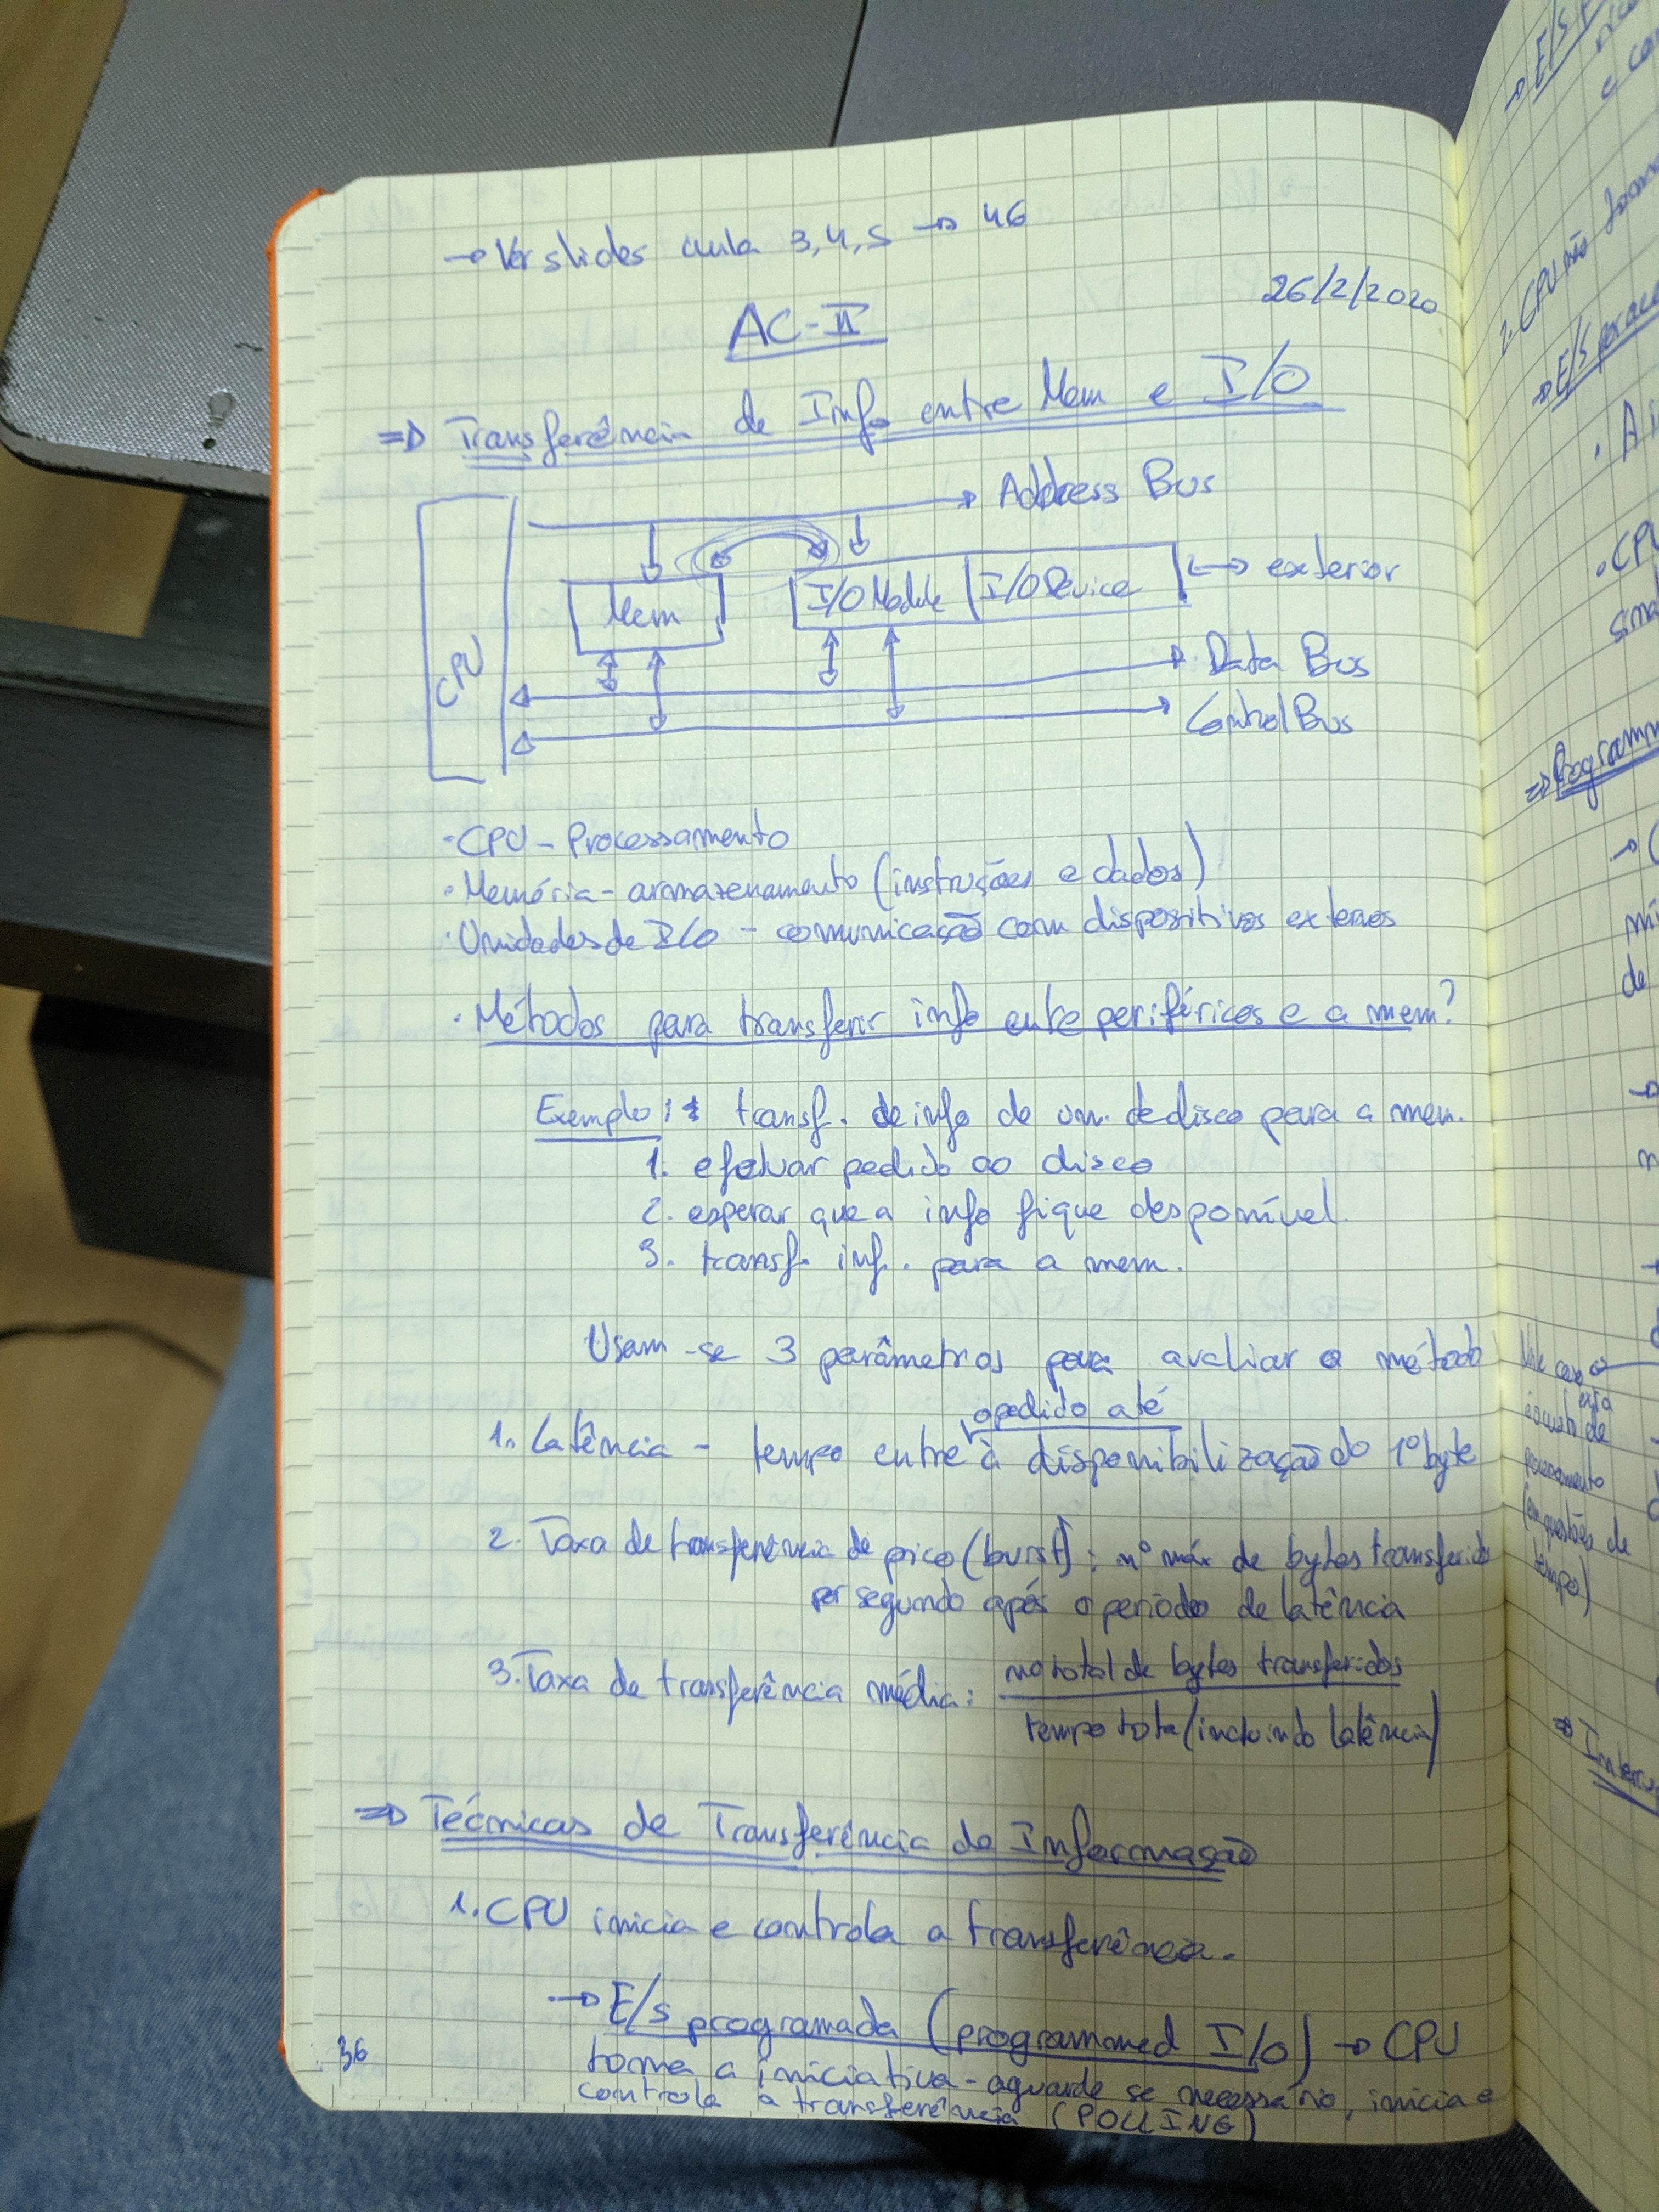 → Ver slides aula 3,4,5 → 46
26/2/2020
AC-II
⇒ Transferência de Info entre Mem e I/O
Address Bus
CPU
Mem
I/O Module
I/O Device
exterior
Data Bus
Control Bus
· CPU - Processamento
· Memória - armazenamento (instruções e dados)
· Unidades de I/O - comunicação com dispositivos externos
· Métodos para transferir info entre periféricos e a mem?
Exemplo: transf. de info de um. de disco para a mem.
1. efetuar pedido ao disco
2. esperar que a info fique desponível.
3. transf. inf. para a mem.
Usam-se 3 parâmetros para avaliar o método
o pedido até
1. Latência - tempo entre à disponibilização do 1º byte
2. Taxa de transferência de pico (burst): nº máx de bytes transferidos
por segundo após o periodo de latência
3. Taxa de transferência média: no total de bytes transferidos
tempo total (incluindo latência)
⇒ Técnicas de Transferência de Informação
1. CPU inicia e controla a transferência.
→ E/S programada (programmed I/O) → CPU
toma a iniciativa - aguarda se necessário, inicia e
controla a transferência (POLLING)
36
→ E/S
2. CPU não
⇒ E/S
· A
· CPU
sinal
⇒ Programm
mí
de
processamento
(em questões de
tempo)